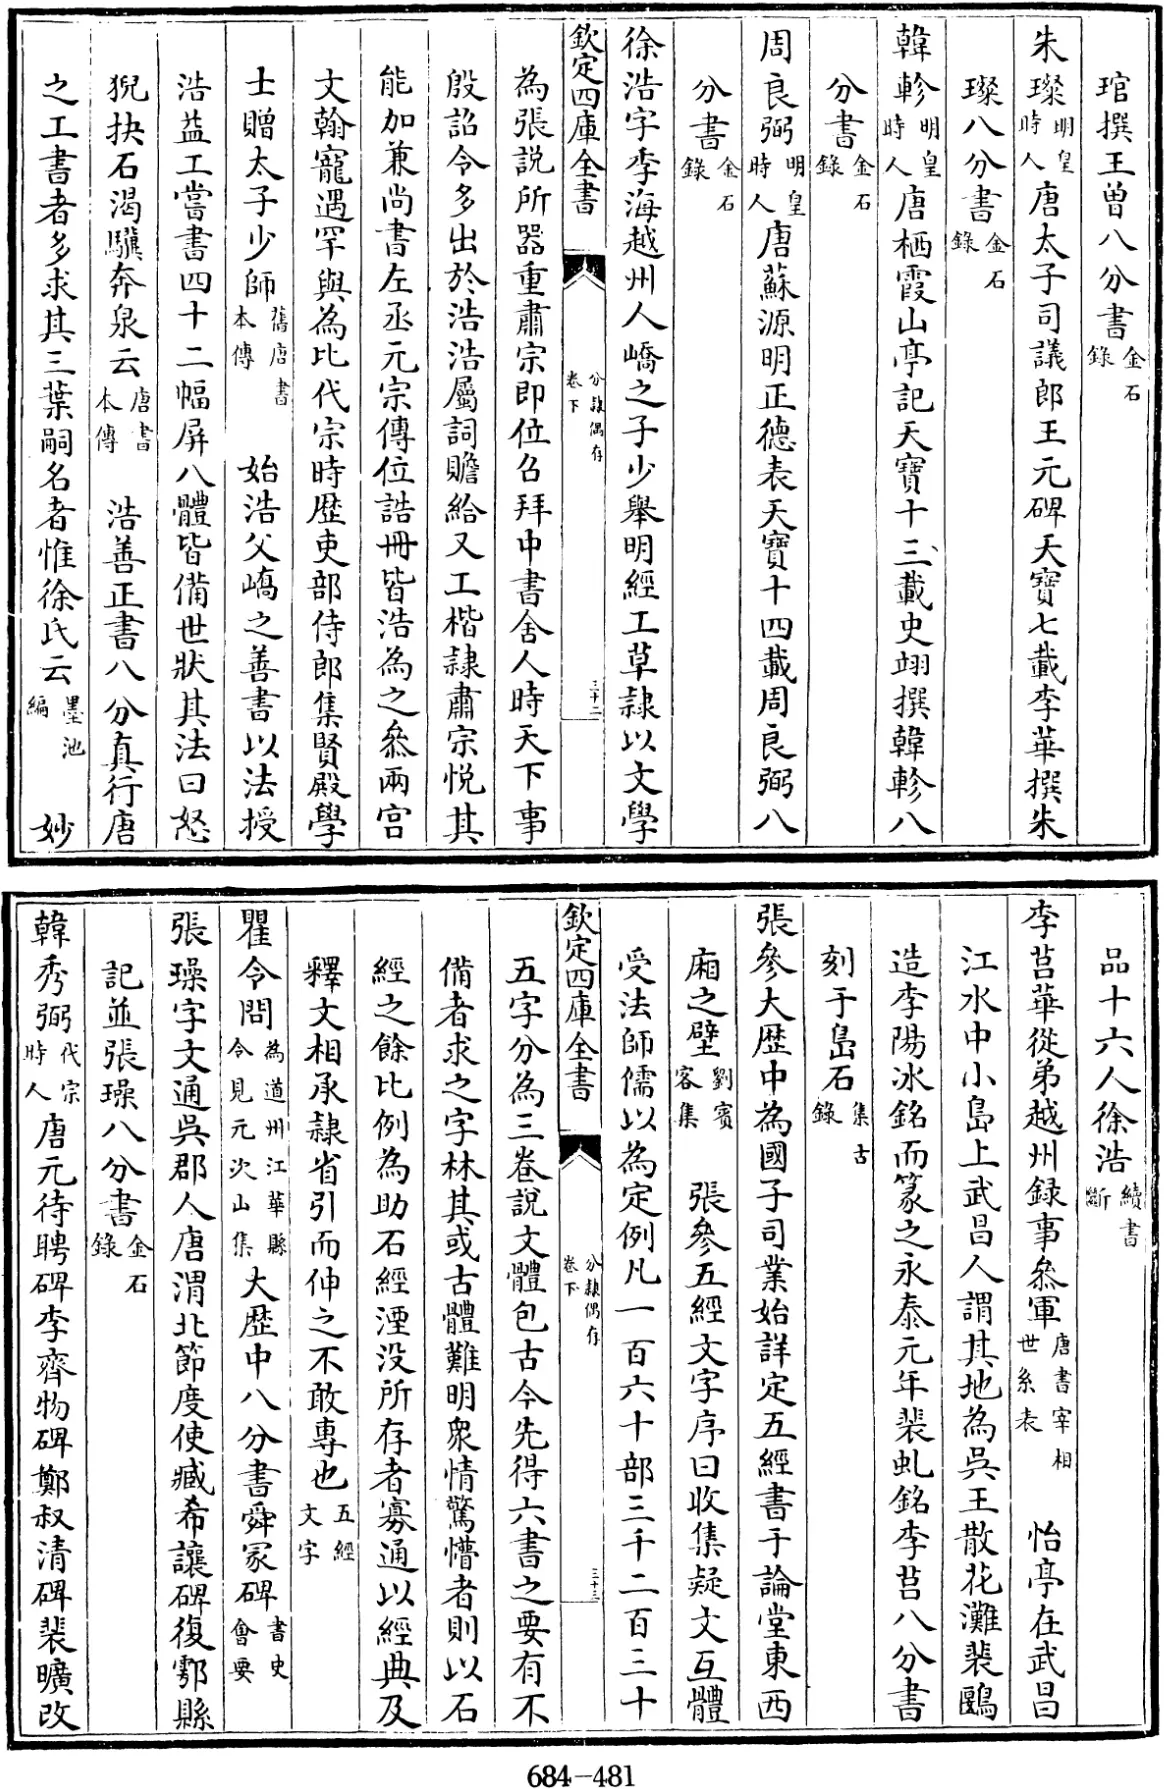 琯撰王曾八分書金石錄
朱璨明皇時人唐太子司議郎王元碑天寶七載李華撰朱
璨八分書金石錄
韓軫明皇時人唐栖霞山亭記天寶十三載史翊撰韓軫八
分書金石錄
周良弼明皇時人唐蘇源明正德表天寶十四載周良弼八
分書金石錄
徐浩字季海越州人嶠之子少舉明經工草隸以文學
欽定四庫全書 分隸偶存卷下 三十二
為張説所器重肅宗即位召拜中書舍人時天下事
殷詔令多出於浩浩屬詞贍給又工楷隸肅宗悦其
能加兼尚書左丞元宗傳位誥冊皆浩為之叅兩宫
文翰寵遇罕與為比代宗時歴吏部侍郎集賢殿學
士贈太子少師舊唐書本傳 始浩父嶠之善書以法授
浩益工嘗書四十二幅屏八體皆備世狀其法曰怒
猊抉石渴驥奔泉云唐書本傳 浩善正書八分真行唐
之工書者多求其三葉嗣名者惟徐氏云墨池編 妙
品十六人徐浩續書斷
李莒華從弟越州録事叅軍唐書宰相世系表 怡亭在武昌
江水中小島上武昌人謂其地為吳王散花灘裴鶠
造李陽冰銘而篆之永泰元年裴虬銘李莒八分書
刻于島石集古錄
張參大歴中為國子司業始詳定五經書于論堂東西
廂之壁劉賓客集 張參五經文字序曰收集疑文互體
受法師儒以為定例凡一百六十部三千二百三十
欽定四庫全書 分隸偶存卷下 三十三
五字分為三卷説文體包古今先得六書之要有不
備者求之字林其或古體難明衆情驚懵者則以石
經之餘比例為助石經湮没所存者寡通以經典及
釋文相承隷省引而伸之不敢專也五經文字
瞿令問為道州江華縣令見元次山集大歴中八分書舜冢碑書史會要
張璪字文通吳郡人唐渭北節度使臧希讓碑復鄠縣
記並張璪八分書金石錄
韓秀弼代宗時人唐元待聘碑李齊物碑鄭叔清碑裴曠改
684-481